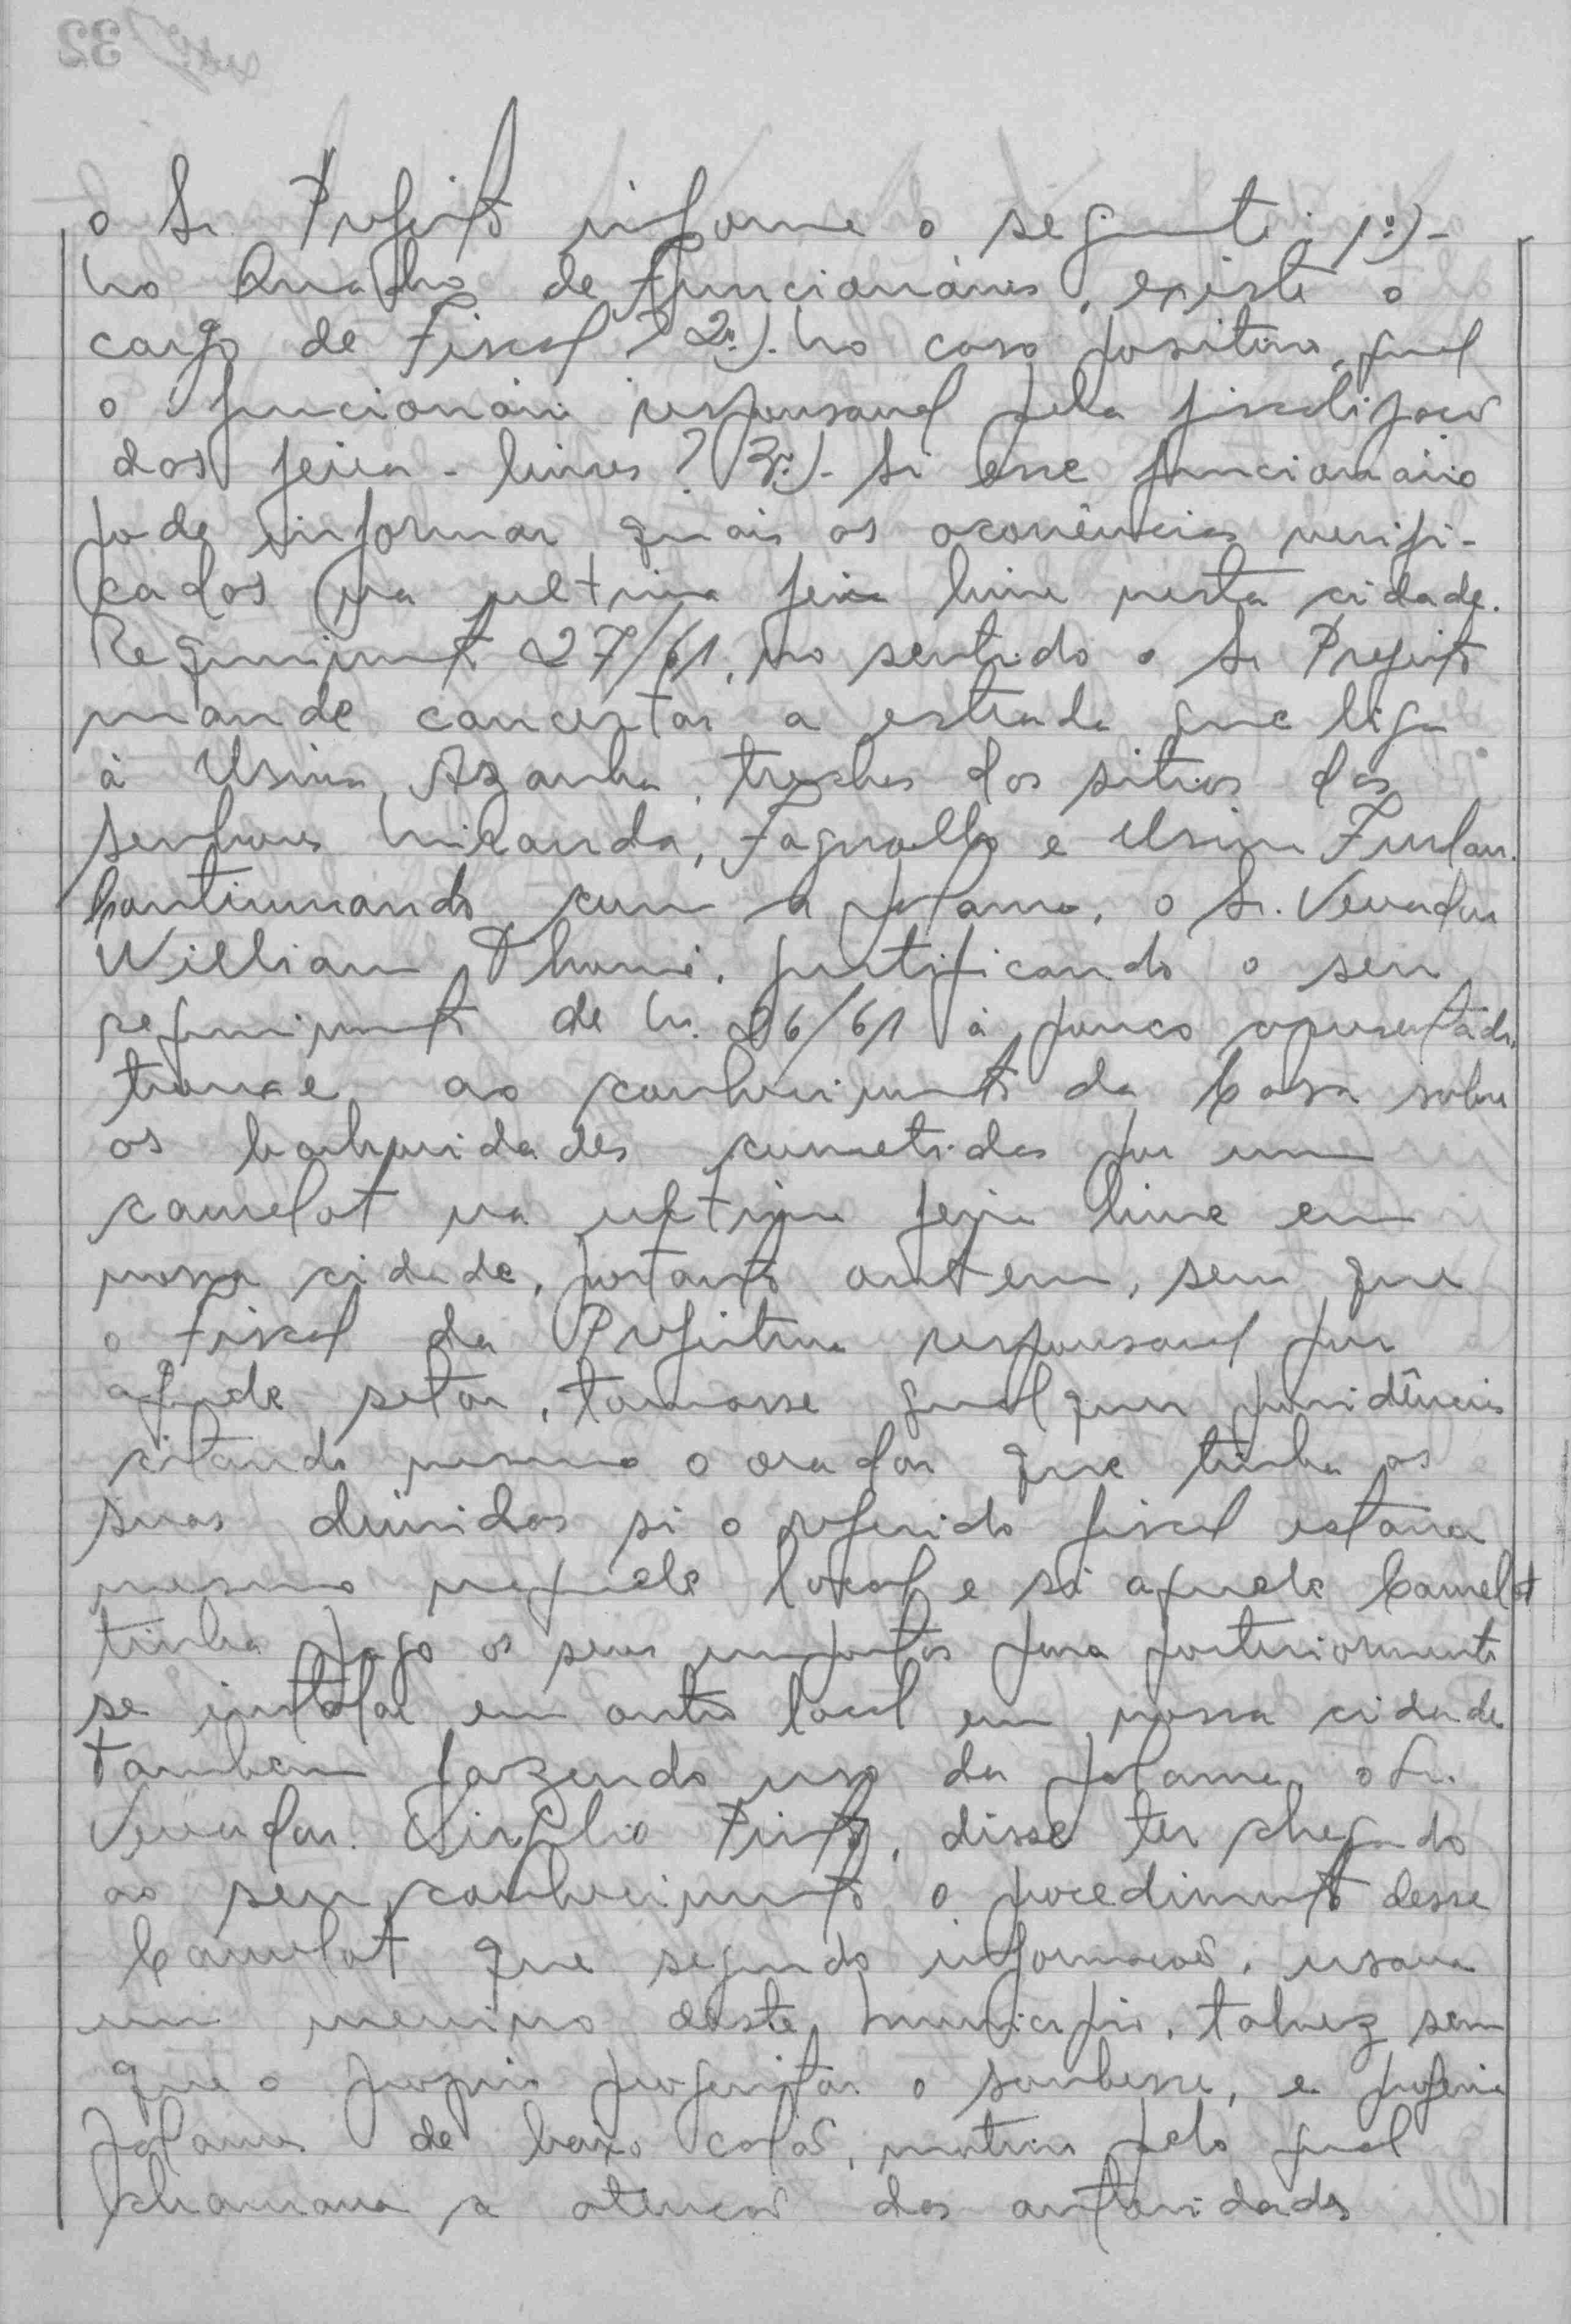 o Sr. Prefeito informe o seguinte: 1º)-
No Quadro de Funcionários, existe o
cargo de Fiscal? 2º). No caso positivo, qual
o funcionário responsavel pela fiscalização
das feira-livres? 3º)- Si esse funcionario
pode informar quais as ocorrências verifi-
cadas na ultima feira livre nesta cidade.
Requerimento 27/61, no sentido o Sr Prefeito
mande concertar a estrada que liga
à Usina Azanha, trechos dos sitios dos
senhores Miranda, Fagnollo e Usina Furlan.
Continuando com a palavra, o Sr. Vereador
William Thomé, justificando o seu
requerimento de N. 26/61 à pouco apresentado,
trouxe ao conhecimento da Casa sobre
as barbaridades cometidas por um
camelot na ultima feira livre em
nossa cidade, portanto ontem, sem que
o Fiscal da Prefeitura responsavel por
aquele setor, tomasse qualquer providências
citando mesmo o orador que tinha as
suas duvidas si o referido fiscal estava
mesmo naquele local e si aquele Camelot
tinha pago os seus impostos para posteriormente
se instalar em outro local em nossa cidade
Tambem fazendo uso da palavra, o Sr.
Vereador Virgilio Pinto, disse ter chegado
ao seu conhecimento o procedimento desse
Camelot que segundo informações, usava
um menino deste Municipio, talvez sem
que o proprio progenitor o soubesse, e proferia
palavras de baixo calão, motivo pelo qual
chamava a atenção das autoridades